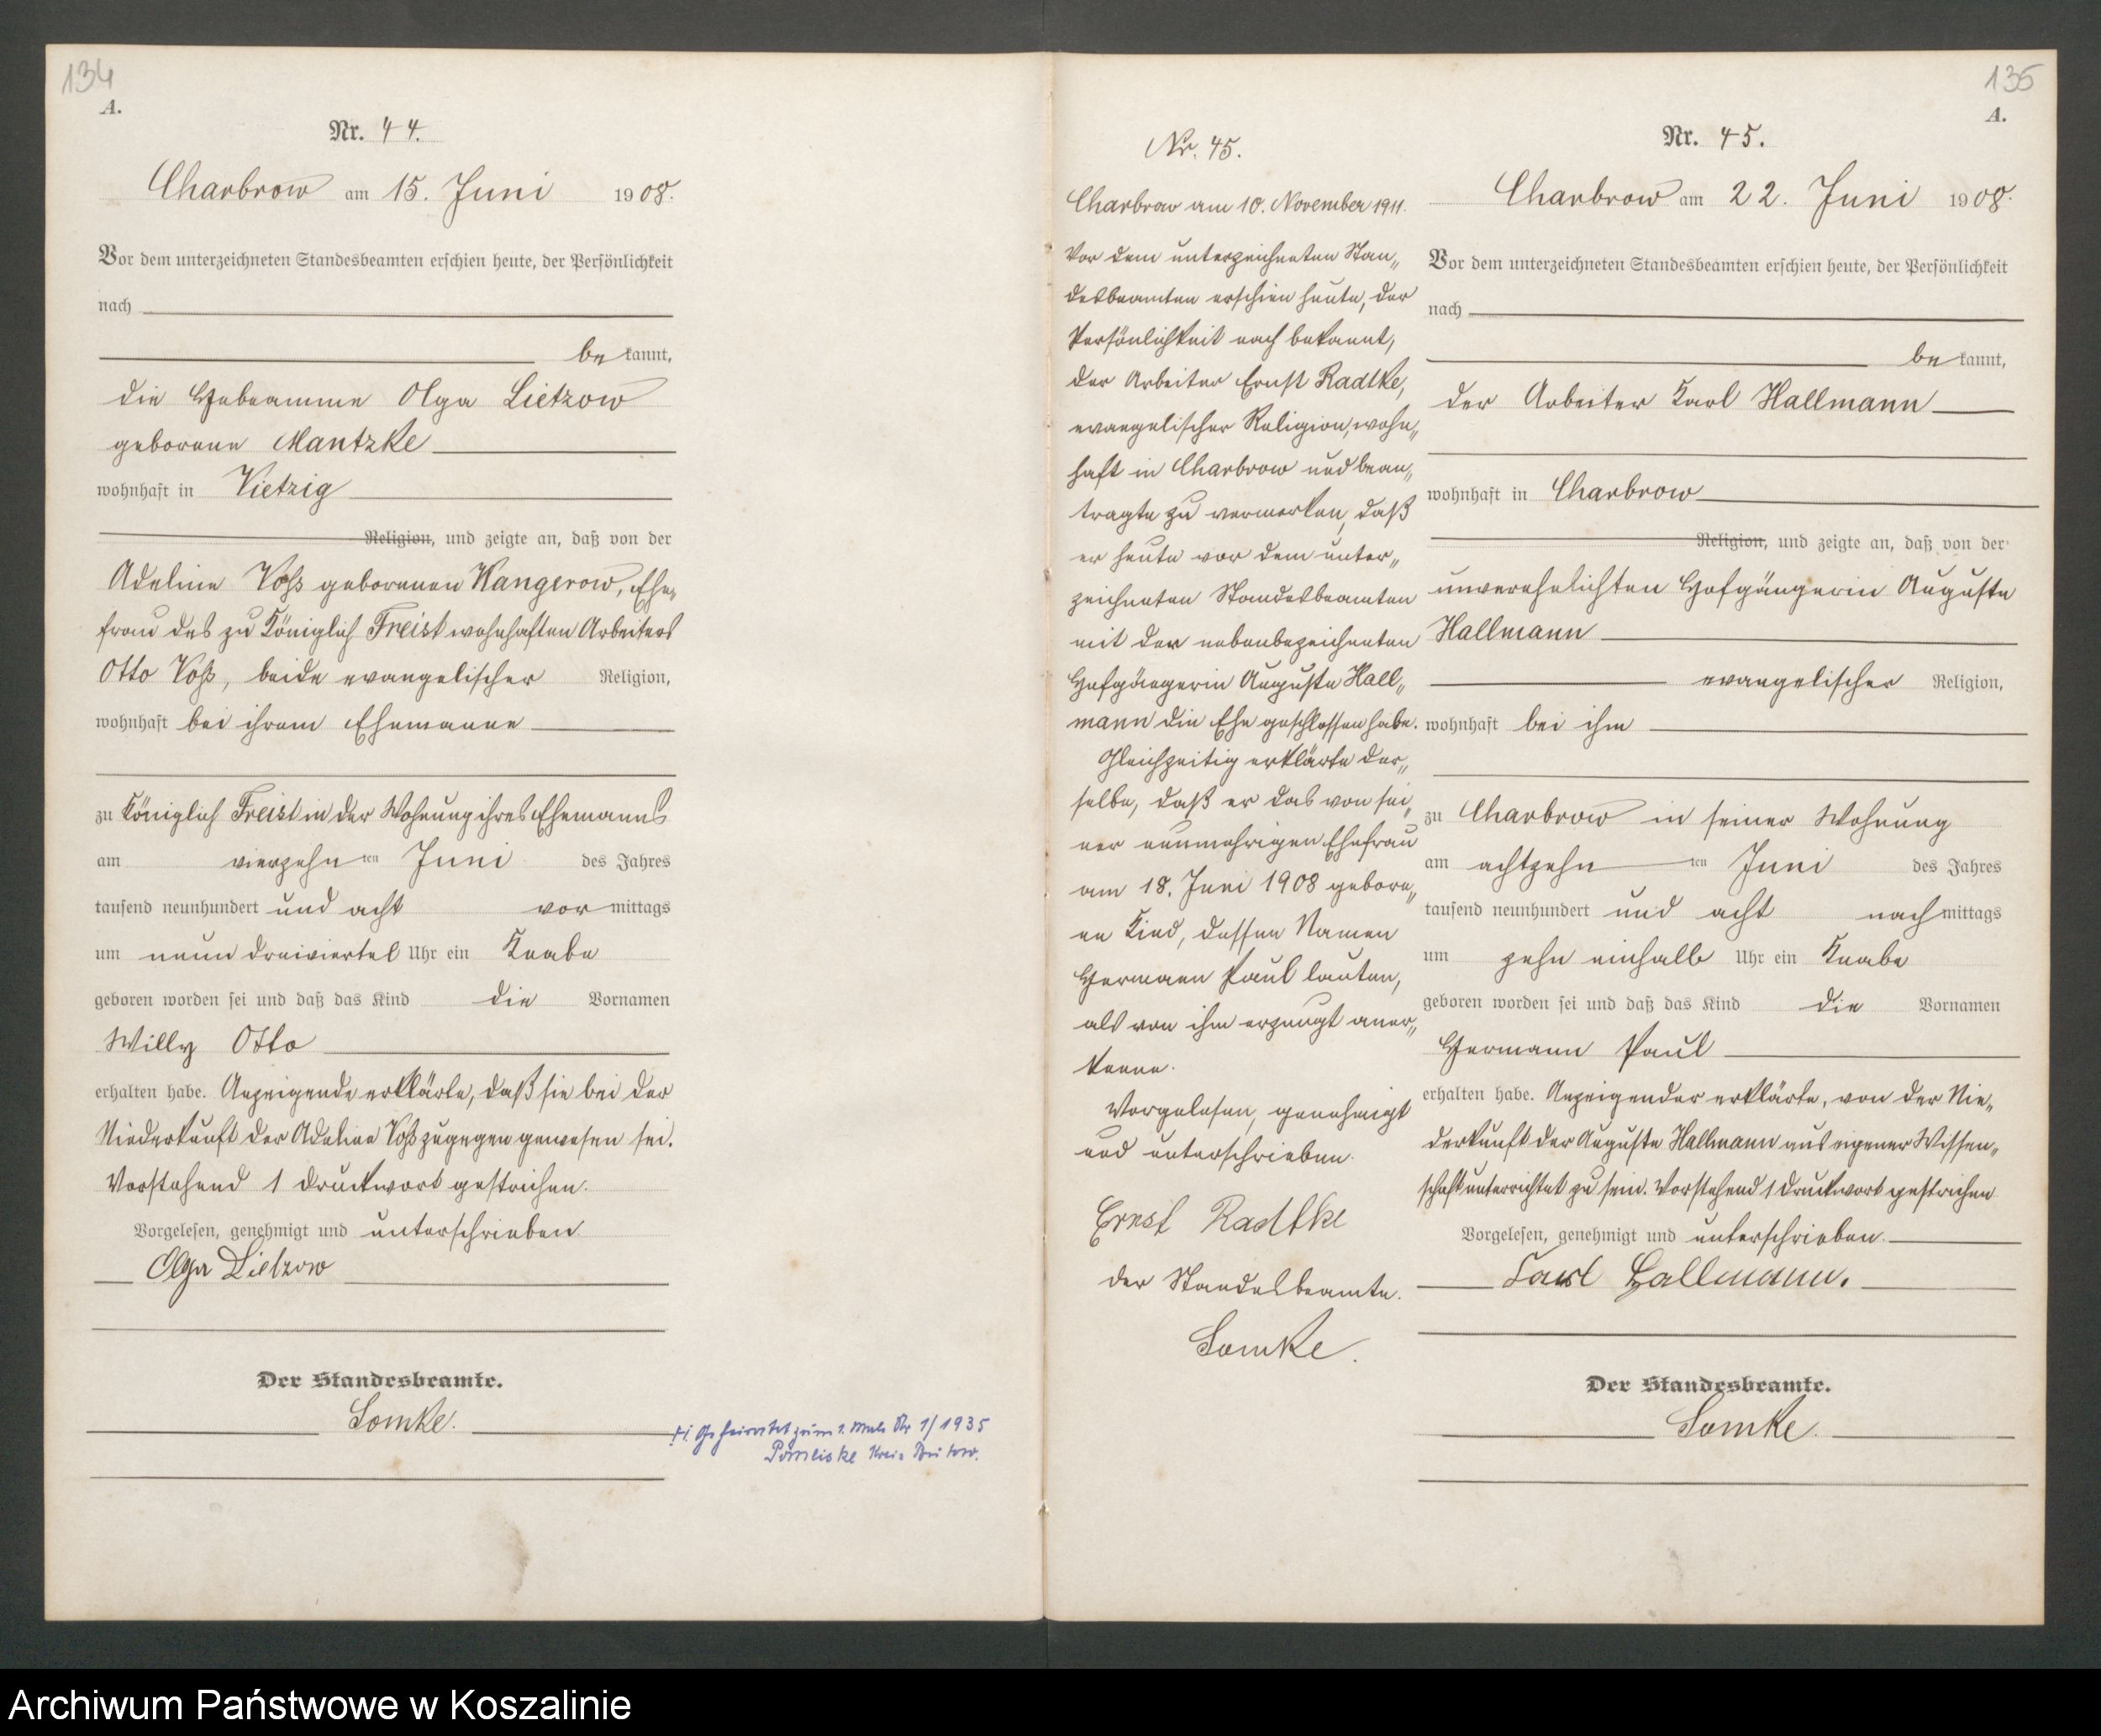 134
A.
Nr. 44.
Charbrow am 15. Juni 1908.
Vor dem unterzeichneten Standesbeamten erschien heute, der Persönlichkeit
nach
be kannt,
die Hebeamme Olga Lietzow
geborene Mantzke
wohnhaft in Vietzig
Religion, und zeigte an, daß von der
Adeline Voß geborenen Wangerow, Ehe„
frau des zu Königlich Freist wohnhaften Arbeiters
Otto Voß, beide evangelischer Religion,
wohnhaft bei ihrem Ehemanne
zu Königlich Freist in der Wohnung ihres Ehemannes
am vierzehn ten Juni des Jahres
tausend neunhundert und acht vor mittags
um neun dreiviertel Uhr ein Knabe
geboren worden sei und daß das Kind die Vornamen
Willy Otto
erhalten habe. Anzeigende erklärte, daß sie bei der
Niederkunft der Adeline Voß zugegen gewesen sei.
Vorstehend 1 Druckwort gestrichen.
Vorgelesen, genehmigt und unterschrieben.
Olga Lietzow
Der Standesbeamte.
Lomke.
Geheiratet zum 1. Male Nr 1/1935
Pomeiske Kreis Bütow.
135
A.
Nr. 45.
Charbrow am 10. November 1911.
Vor dem unterzeichneten Stan„
desbeamten erschien heute, der
Persönlichkeit nach bekannt,
der Arbeiter Ernst Radtke,
evangelischer Religion, wohn„
haft in Charbrow und bean„
tragte zu vermerken, daß
er heute vor dem unter„
zeichneten Standesbeamten
mit der nebenbezeichneten
Hofgängerin Auguste Hall„
mann die Ehe geschlossen habe.
Gleichzeitig erklärte der„
selbe, daß er das von sei„
ner nunmehrigen Ehefrau
am 18. Juni 1908 gebore„
ne Kind, dessen Namen
Hermann Paul lauten,
als von ihm erzeugt aner„
kenne.
Vorgelesen, genehmigt
und unterschrieben.
Ernst Radtke
Der Standesbeamte.
Lomke.
Nr. 45.
Charbrow am 22. Juni 1908.
Vor dem unterzeichneten Standesbeamten erschien heute, der Persönlichkeit
nach
be kannt,
der Arbeiter Karl Hallmann
wohnhaft in Charbrow
Religion, und zeigte an, daß von der
unverehelichten Hofgängerin Auguste
Hallmann
evangelischer Religion,
wohnhaft bei ihm
zu Charbrow in seiner Wohnung
am achtzehn ten Juni des Jahres
tausend neunhundert und acht nach mittags
um zehn einhalb Uhr ein Knabe
geboren worden sei und daß das Kind die Vornamen
Hermann Paul
erhalten habe. Anzeigender erklärte, von der Nie„
derkunft der Auguste Hallmann aus eigener Wissen„
schaft unterrichtet zu sein. Vorstehend 1 Druckwort gestrichen
Vorgelesen, genehmigt und unterschrieben.
Karl Hallmann.
Der Standesbeamte.
Lomke.
Archiwum Państwowe w Koszalinie